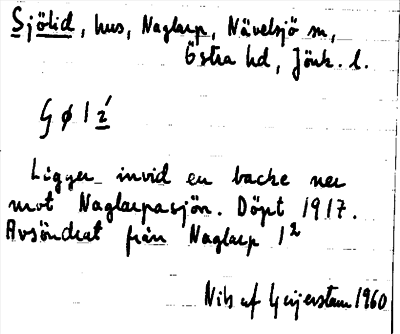 Sjölid, hus, Naglarp, Nävelsjö sn,
Östra hd, Jönk. l.
Ligger invid en backe ner
mot Naglarpasjön. Döpt 1917.
Avsöndrat från Naglarp 1²
Nils af Geijerstam 1960